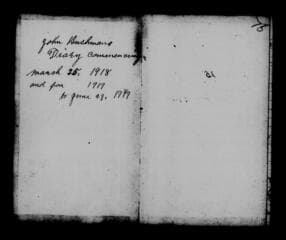 John Buchmans
Diary commencing
march 25. 1918
and for 1919
to June 29. 1919